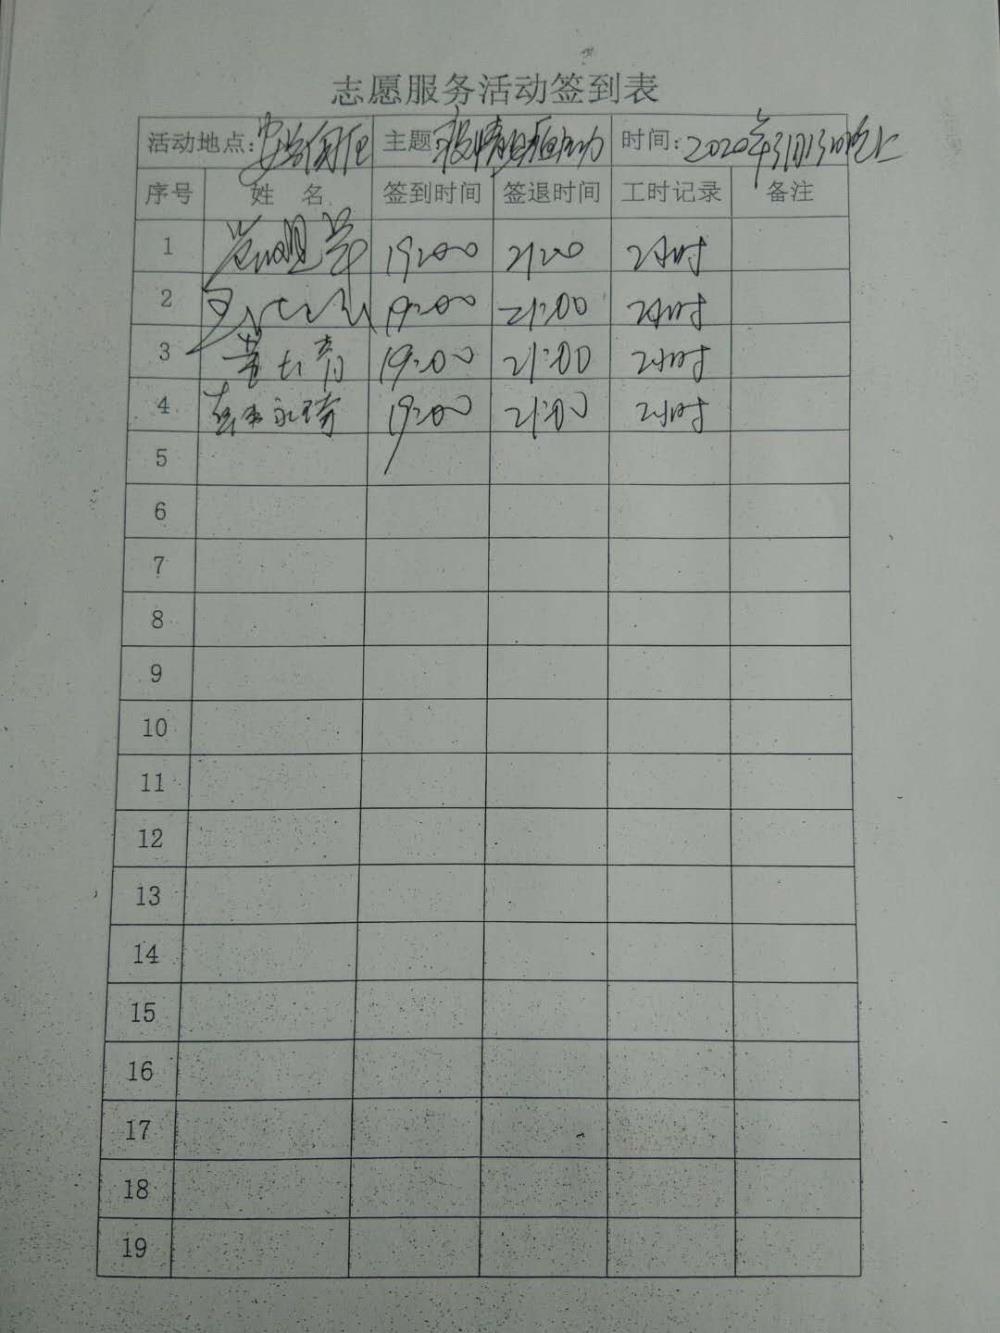 志愿服务活动签到表
活动地点: 主题: 疫情 时间: 2020年3月13日晚上
序号 姓 名 签到时间 签退时间 工时记录 备注
1 19:00 21:00 2小时
2 19:00 21:00 2小时
3 19:00 21:00 2小时
4 19:00 21:00 2小时
5
6
7
8
9
10
11
12
13
14
15
16
17
18
19